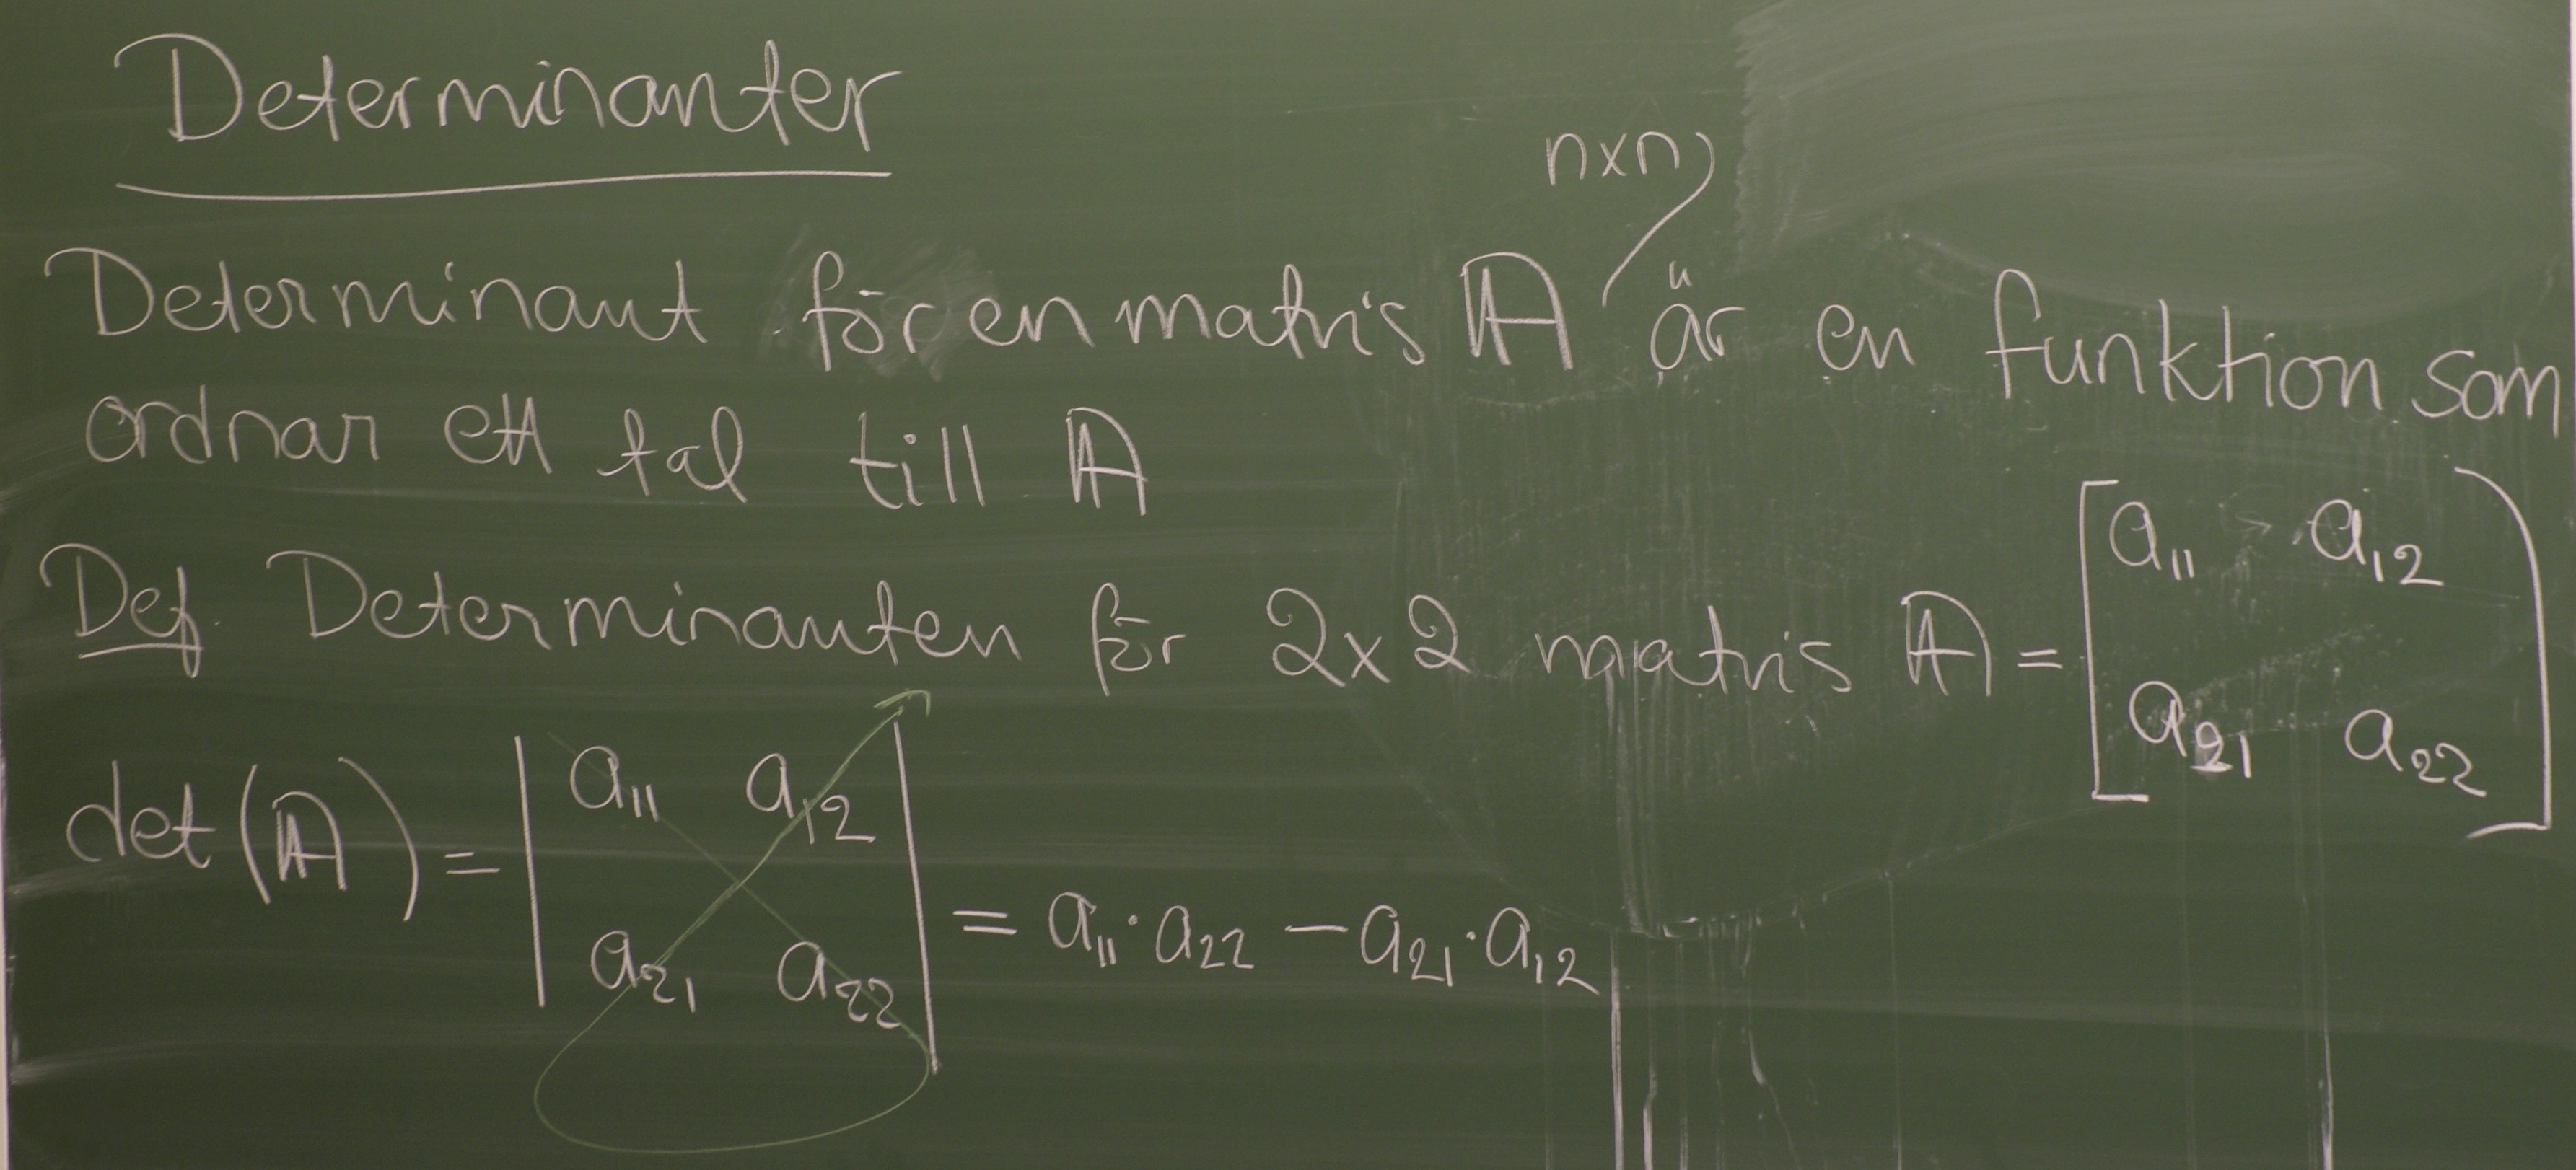 Determinanter
n×n
Determinant för en matris A är en funktion som
ordnar ett tal till A
Def. Determinanten för 2×2 matris A = [a₁₁ a₁₂
a₂₁ a₂₂]
det(A) = |a₁₁ a₁₂
a₂₁ a₂₂| = a₁₁·a₂₂ − a₂₁·a₁₂